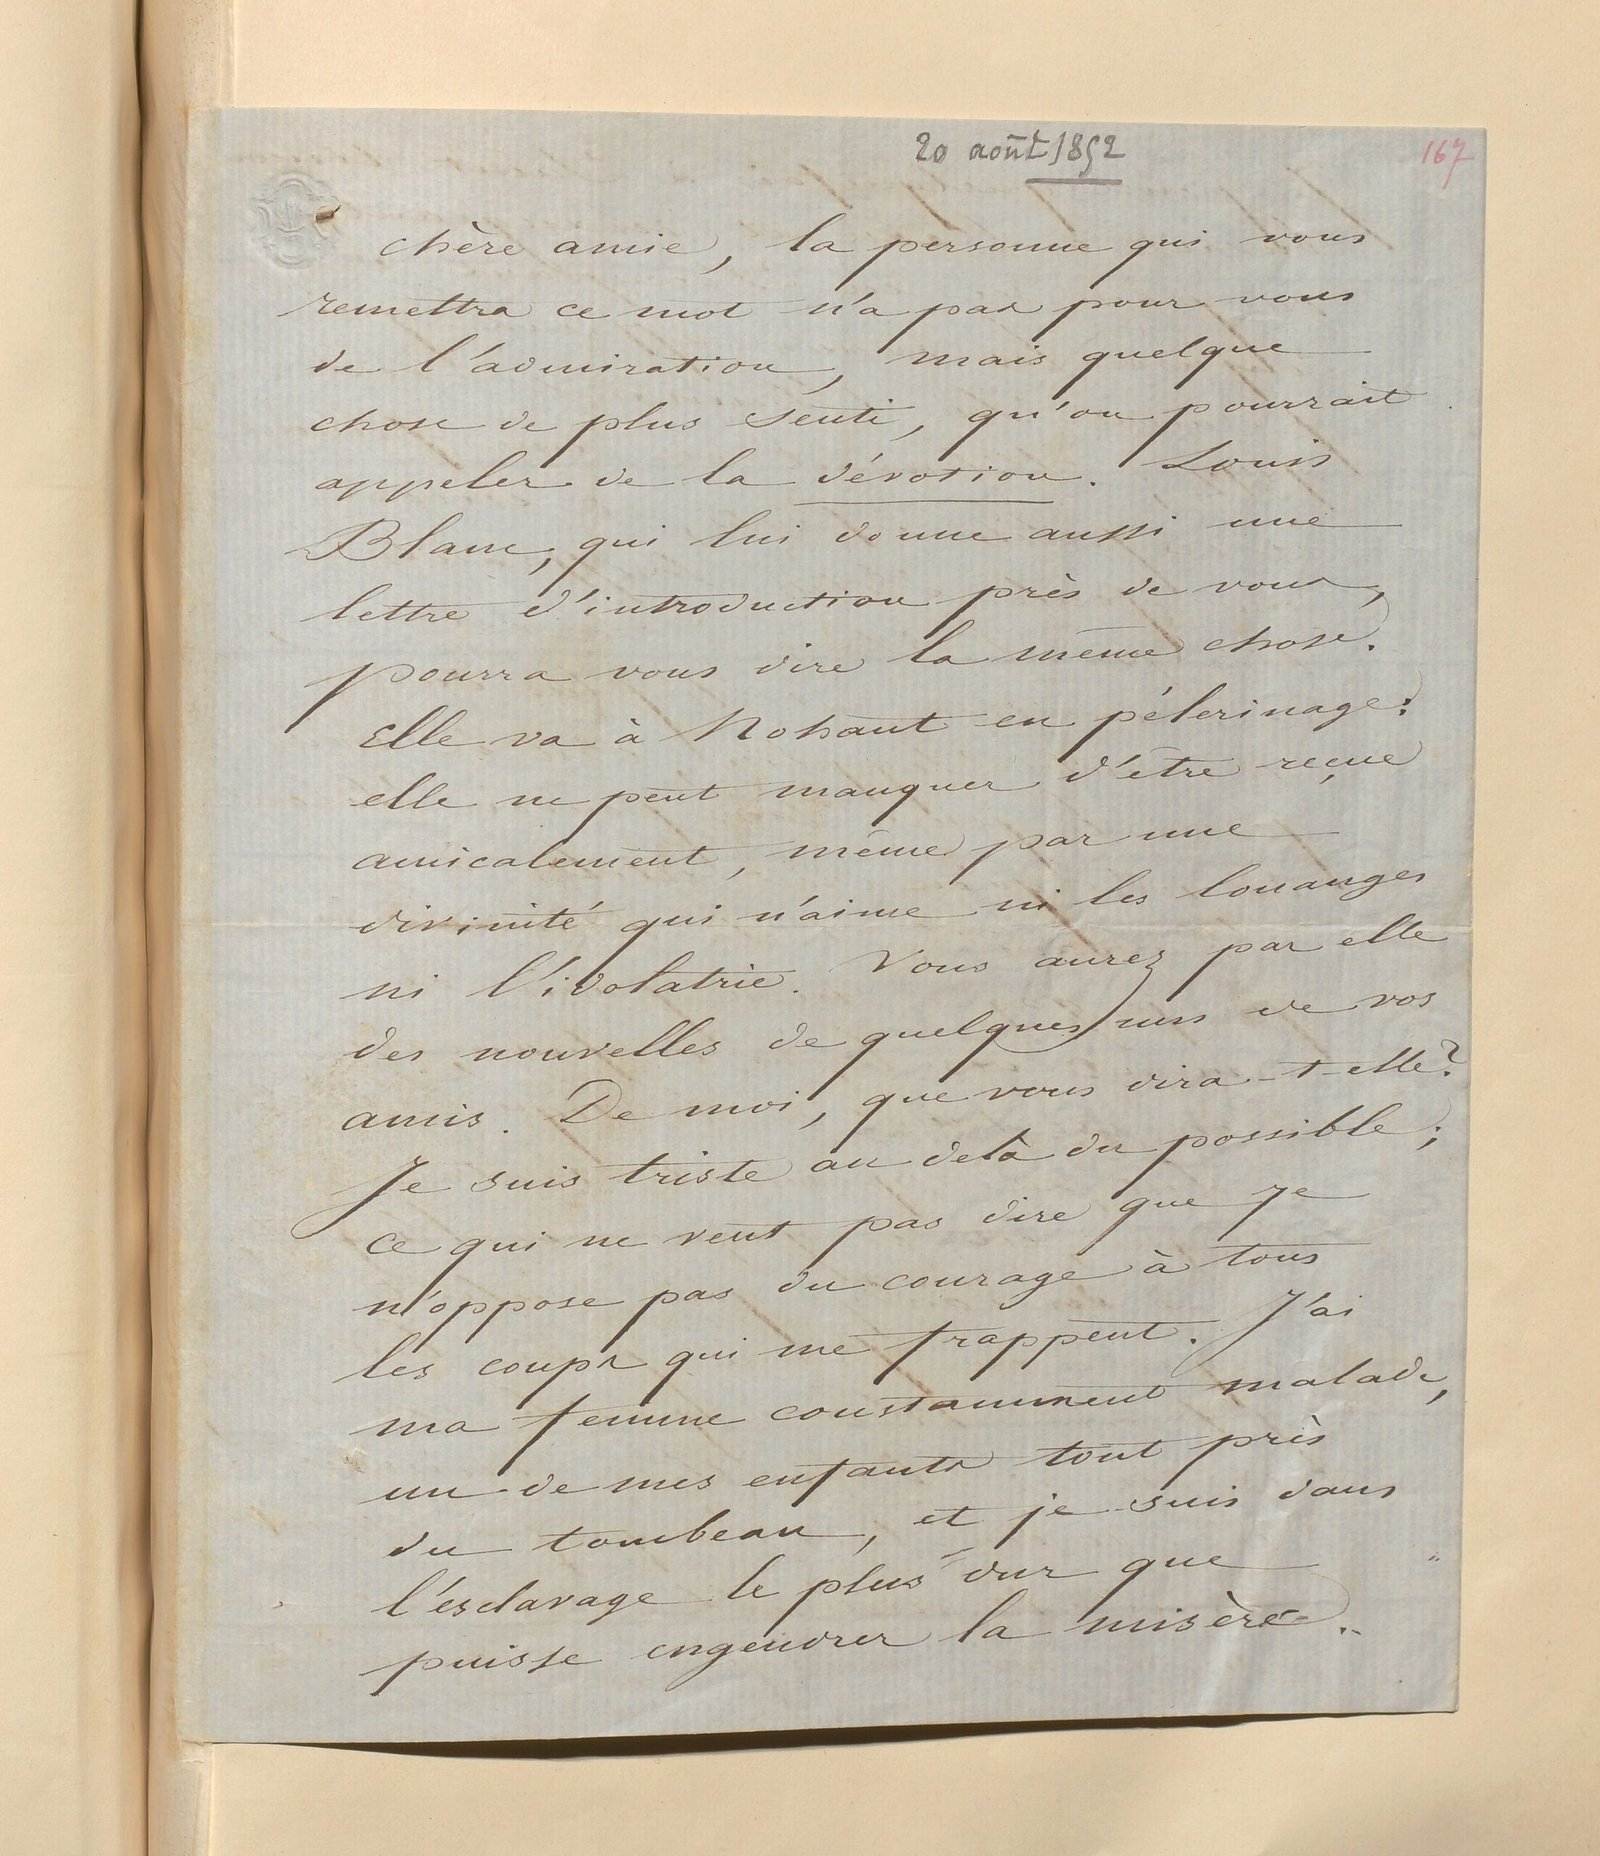 20 août 1852
167
chère amie, la personne qui vous
remettra ce mot n'a pas pour vous
de l'admiration, mais quelque
chose de plus senti, qu'on pourrait
appeler de la dévotion. Louis
Blanc, qui lui donne aussi une
lettre d'introduction près de vous,
pourra vous dire la même chose.
Elle va à Nohant en pélerinage:
elle ne peut manquer d'être reçue
amicalement, même par une
divinité qui n'aime ni les louanges
ni l'idolatrie. Vous aurez par elle
des nouvelles de quelques uns de vos
amis. De moi, que vous dira-t-elle?
Je suis triste au delà du possible;
ce qui ne veut pas dire que je
n'oppose pas du courage à tous
les coups qui me frappent. J'ai
ma femme constamment malade,
un de mes enfants tout près
du tombeau, et je suis dans
l'esclavage le plus dur que
puisse engendrer la misère.